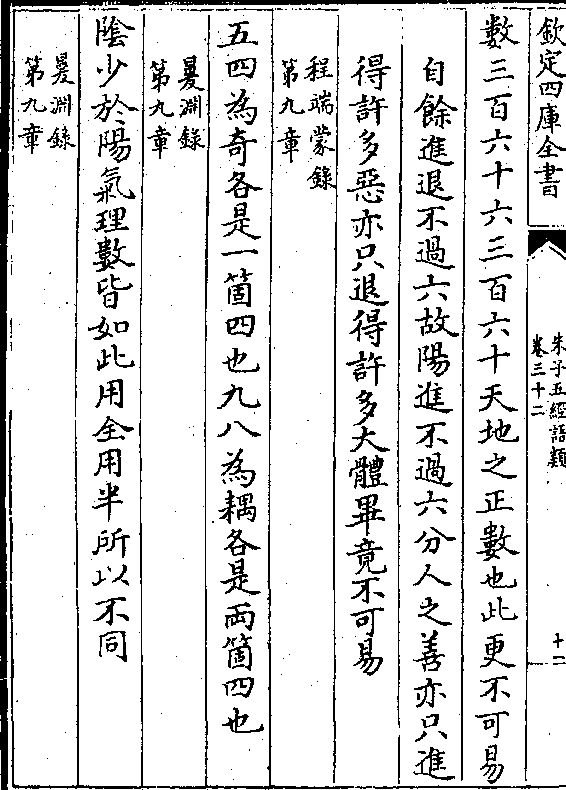 欽定四庫全書
朱子五經語類
卷三十二
十一
數三百六十六三百六十天地之正數也此更不可易
自餘進退不過六故陽進不過六分人之善亦只進
得許多惡亦只退得許多大體畢竟不可易
程端蒙錄
第九章
五四為奇各是一箇四也九八為耦各是兩箇四也
㬊淵錄
第九章
陰少於陽氣理數皆如此用全用半所以不同
㬊淵錄
第九章